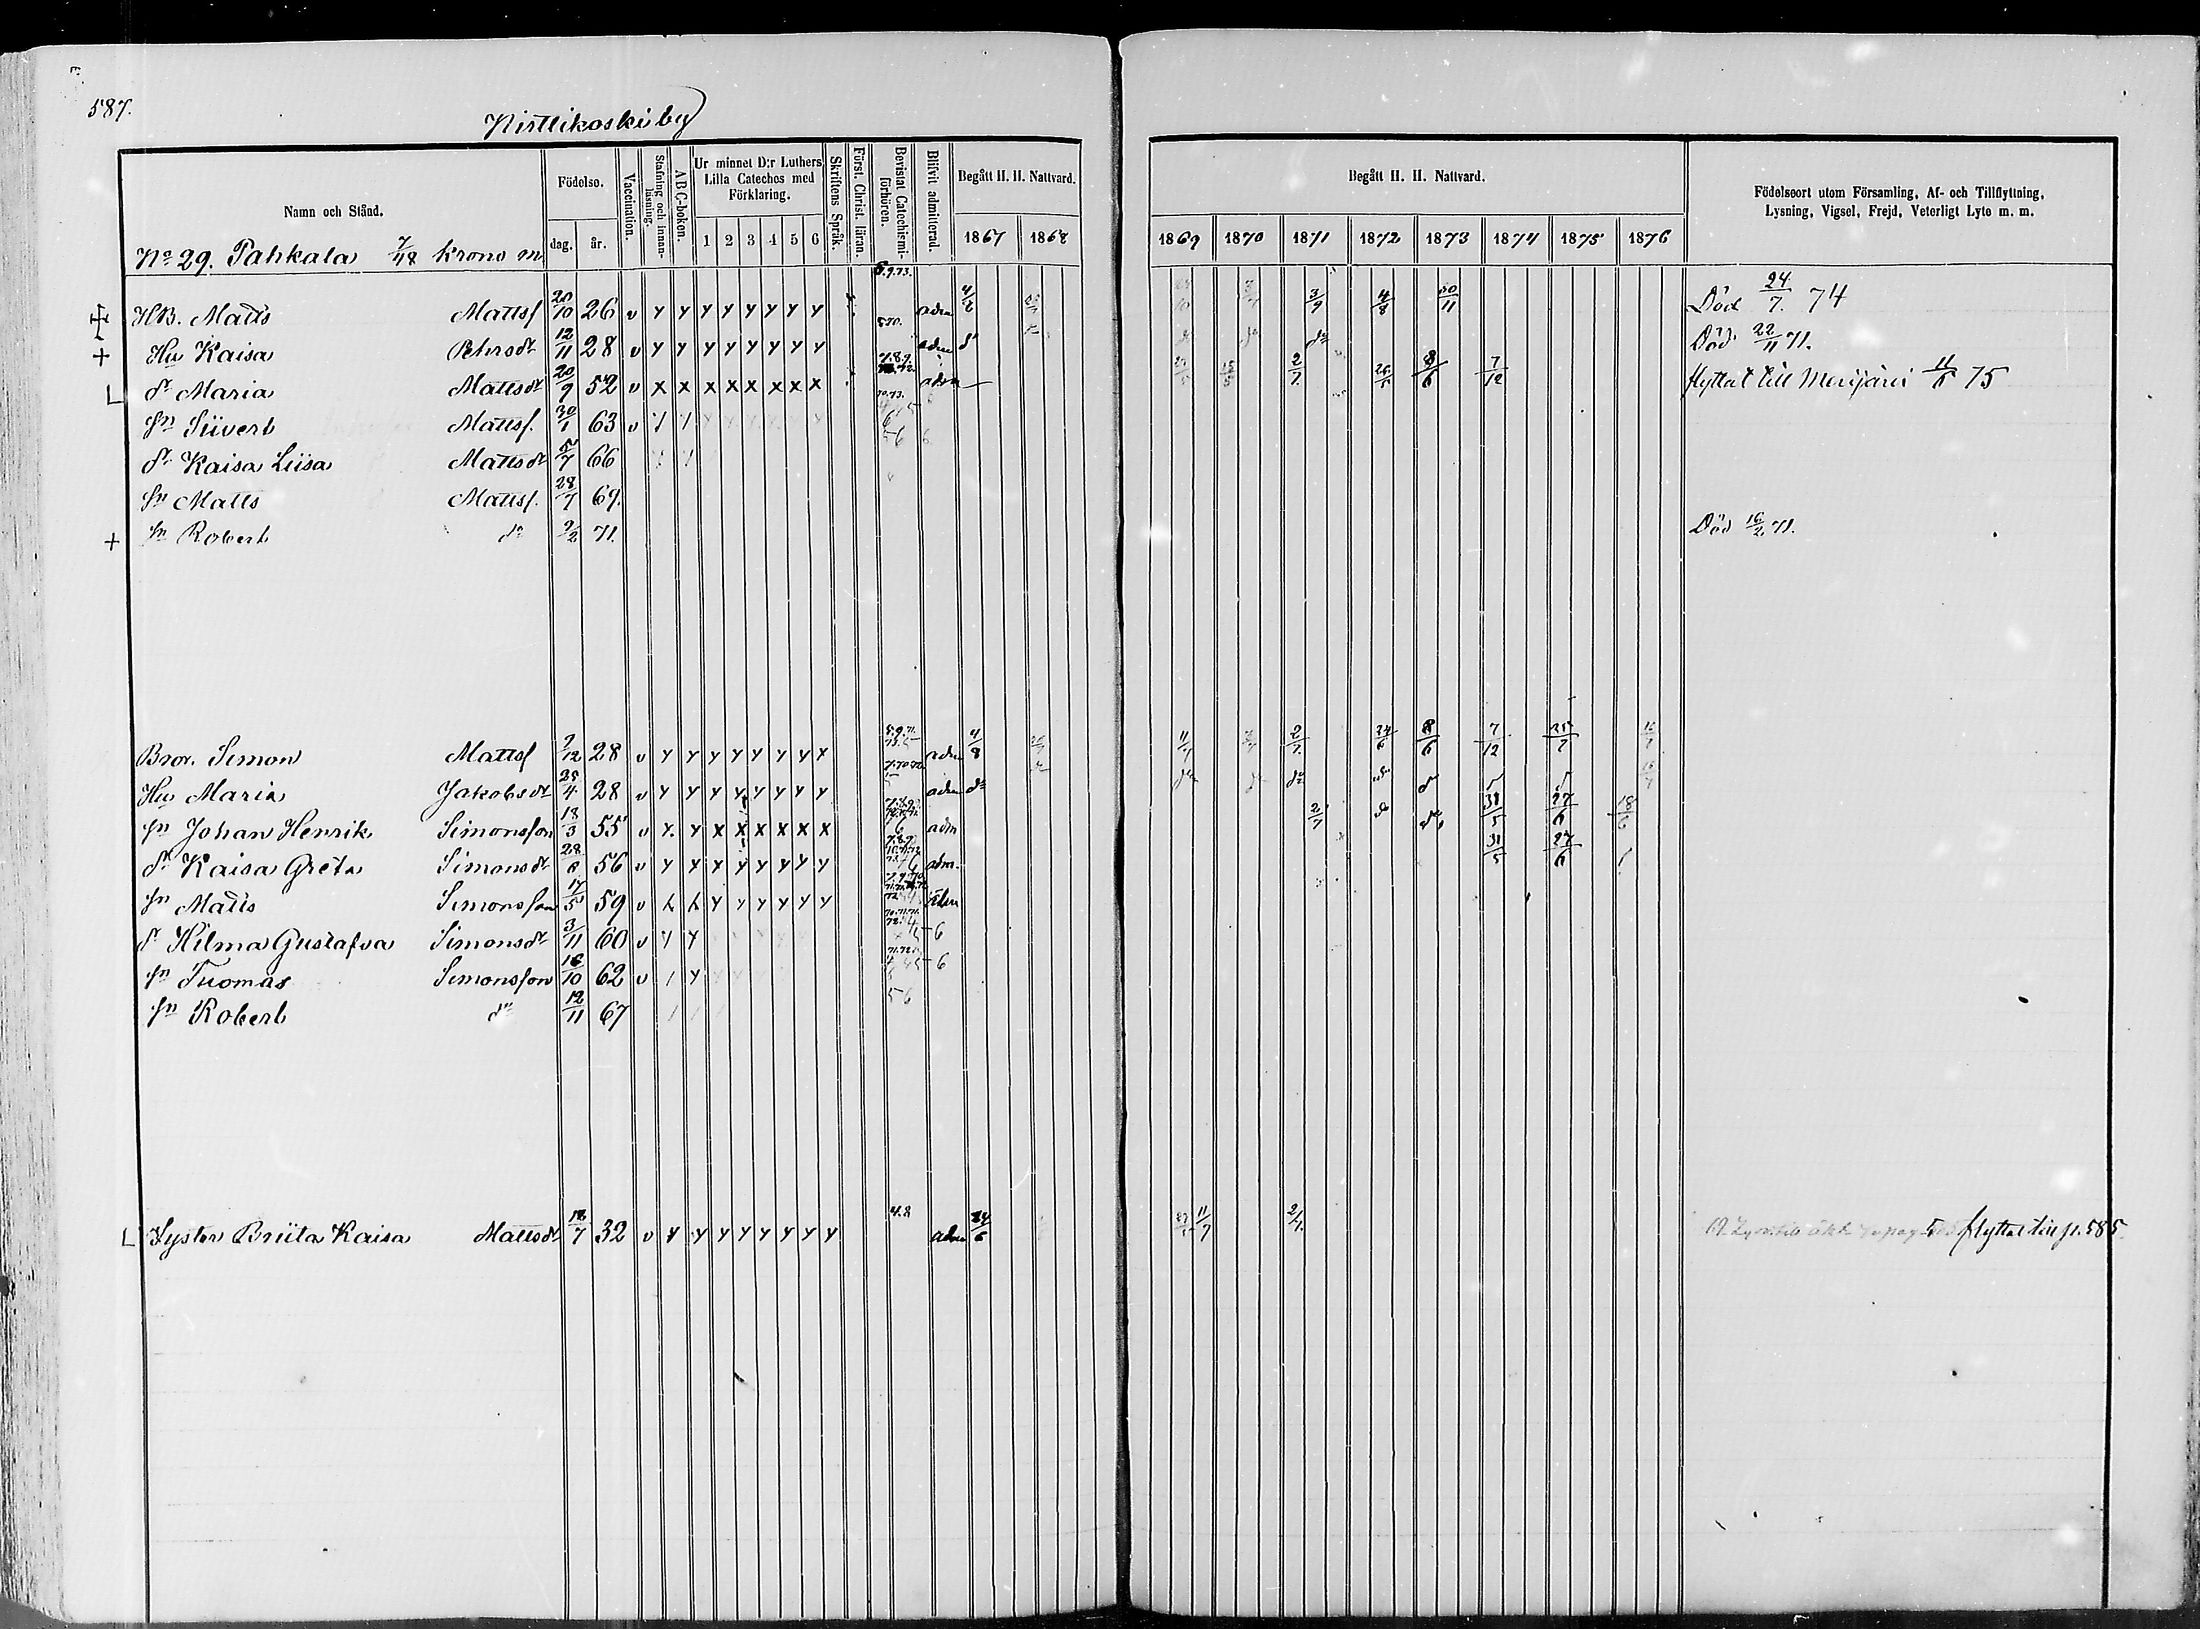 587.
Nistlikoski by
Namn och Stånd.
Födelse.
dag. år.
Vaccination.
Stafning och innan-läsning.
A B C-boken.
Ur minnet D:r Luthers Lilla Cateches med Förklaring.
1 2 3 4 5 6
Skriftens Språk.
Först. Christ. läran.
Bevistat Catechismi-förhören.
Blifvit admitterad.
Begått H. H. Nattvard.
1867 1868
Begått H. H. Nattvard.
1869 1870 1871 1872 1873 1874 1875 1876
Födelseort utom Församling, Af- och Tillflyttning, Lysning, Vigsel, Frejd, Veterligt Lyte m. m.
No 29. Pahkala 7/48 krono m.
HB. Matts Mattsf 20/10 26 v y y y y y y y y adm 4/8 3/9 4/8 30/11 Död 24/7. 74
Hu Kaisa Pehrsdr 12/11 28 v y y y y y y y y adm do do Död 22/11 71.
dr Maria Mattsdr 20/9 52 v x x x x x x x x adm — 2/7 8/6 7/12 flyttat till Merijärvi 11/6 75
sn Siivert Mattsf. 30/1 63 v
dr Kaisa Liisa Mattsdr 5/7 66
sn Matts Mattsf. 28/7 69.
sn Robert do 2/2 71. Död 16/2 71.
Bror. Simon Mattsf 7/12 28 v y y y y y y y x adm 4/8 11/7 2/7 24/6 8/6 7/12 25/7
Hu Maria Jakobsdr 25/4 28 v y y y y y y y y adm do do do do do
sn Johan Henrik Simonsson 18/3 55 v y y x x x x x x adm 2/7 do do 31/5 27/6 18/6
dr Kaisa Greta Simonsdr 28/8 56 v y y y y y y y y adm. 31/5 27/6
sn Matts Simonsson 17/5 59 v
dr Hilma Gustafva Simonsdr 3/11 60 v
sn Tuomas Simonsson 16/10 62 v
sn Robert do 12/11 67
Syster Briita Kaisa Mattsdr 18/7 32 v y y y y y y y y 4.8 adm 24/6 11/7 2/7 flyttat till p. 585